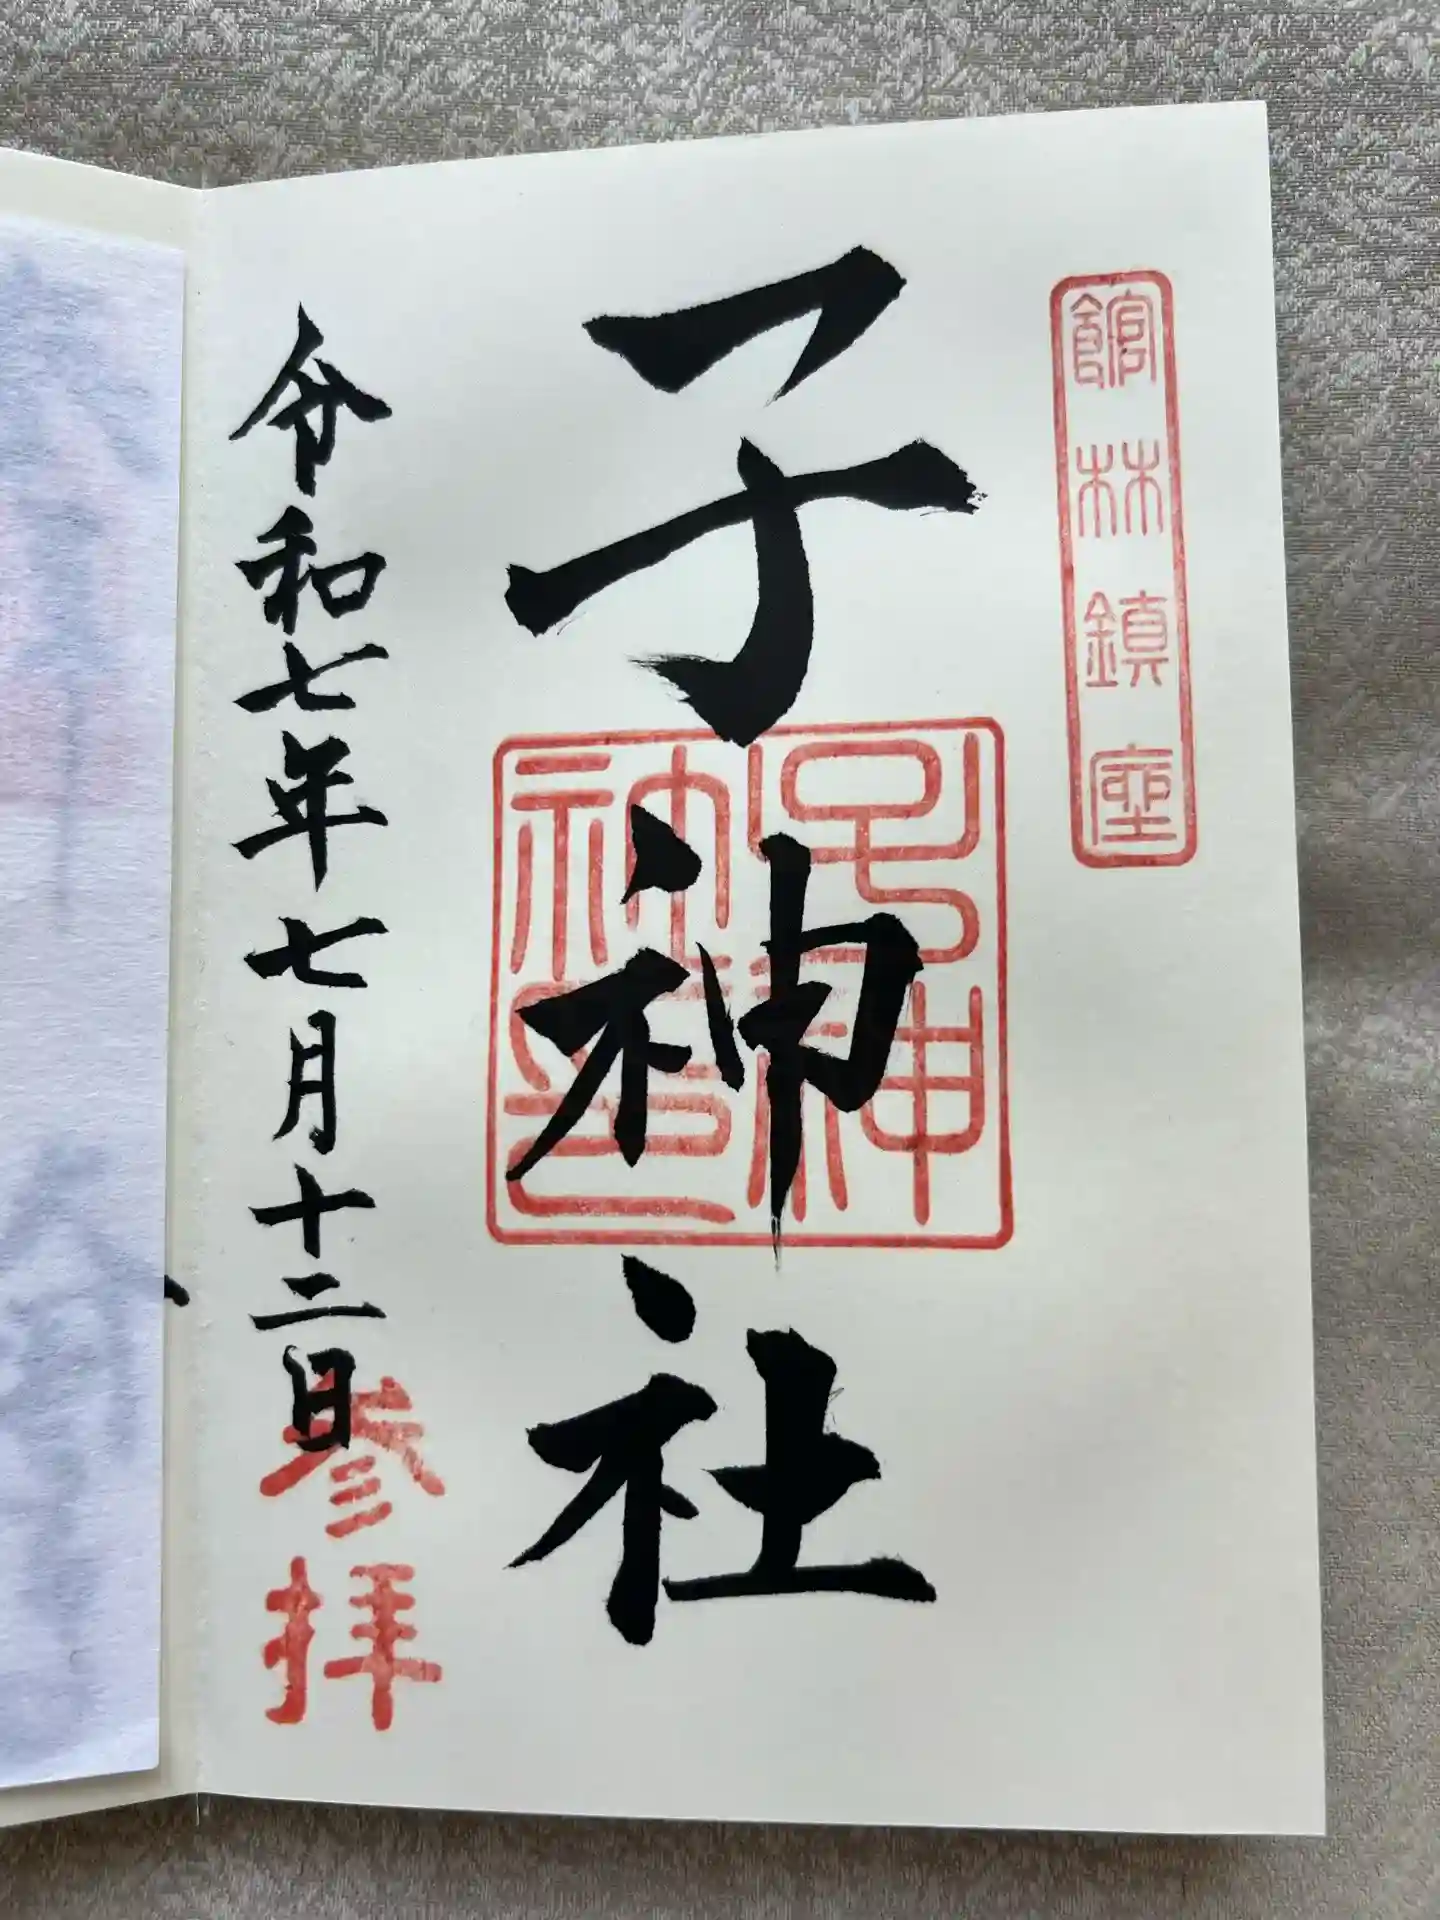 館林鎮座
子神社
子神社印
令和七年七月十二日
参拝